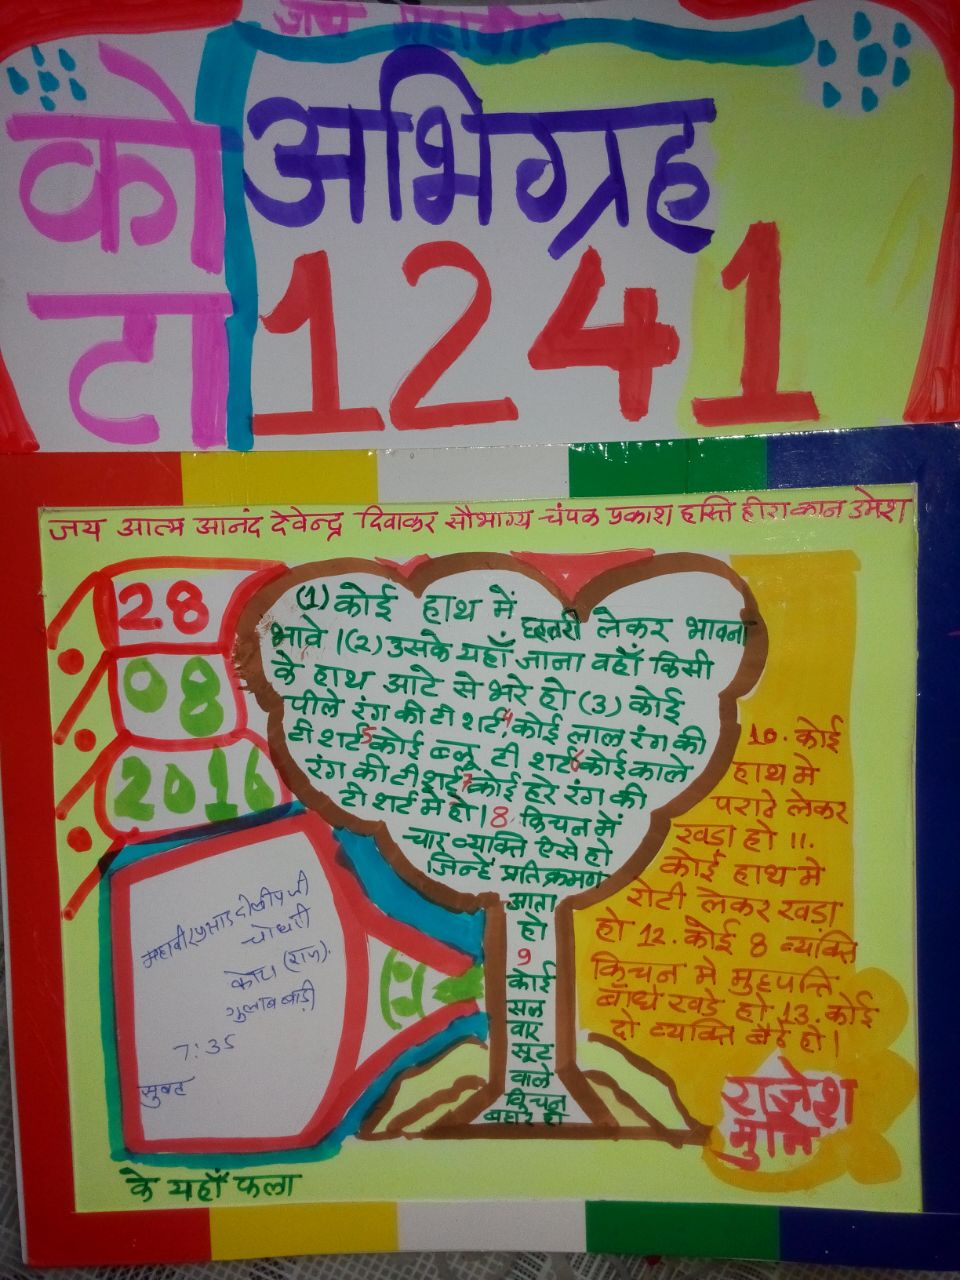 जय महावीर
कोटा
अभिग्रह
1241
जय आत्म आनंद देवेन्द्र दिवाकर सौभाग्य चंपक प्रकाश हस्ति हीरा कान उमेश
28
08
2016
(1) कोई हाथ में छतरी लेकर भावना
भावे । (2) उसके यहाँ जाना वहाँ किसी
के हाथ आटे से भरे हो (3) कोई
पीले रंग की टी शर्ट, 4 कोई लाल रंग की
टी शर्ट 5 कोई ब्लू टी शर्ट 6 कोई काले
रंग की टी शर्ट 7 कोई हरे रंग की
टी शर्ट में हो । 8. किचन में
चार व्यक्ति ऐसे हो
जिन्हें प्रतिक्रमण
आता
हो
9
कोई
सल
वार
सूट
वाले
किचन
बहार हो
10. कोई
हाथ मे
पराठे लेकर
खड़ा हो 11.
कोई हाथ मे
रोटी लेकर खड़ा
हो 12. कोई 8 व्यक्ति
किचन मे मुहपत्ति
बाँधे खड़े हो 13. कोई
दो व्यक्ति बैठे हो ।
राजेश
मुनि
महावीरप्रसाद दीलीप जी
चोधरी
कोटा (राज).
गुलाब बाड़ी
7:35
सुबह
के यहाँ फला